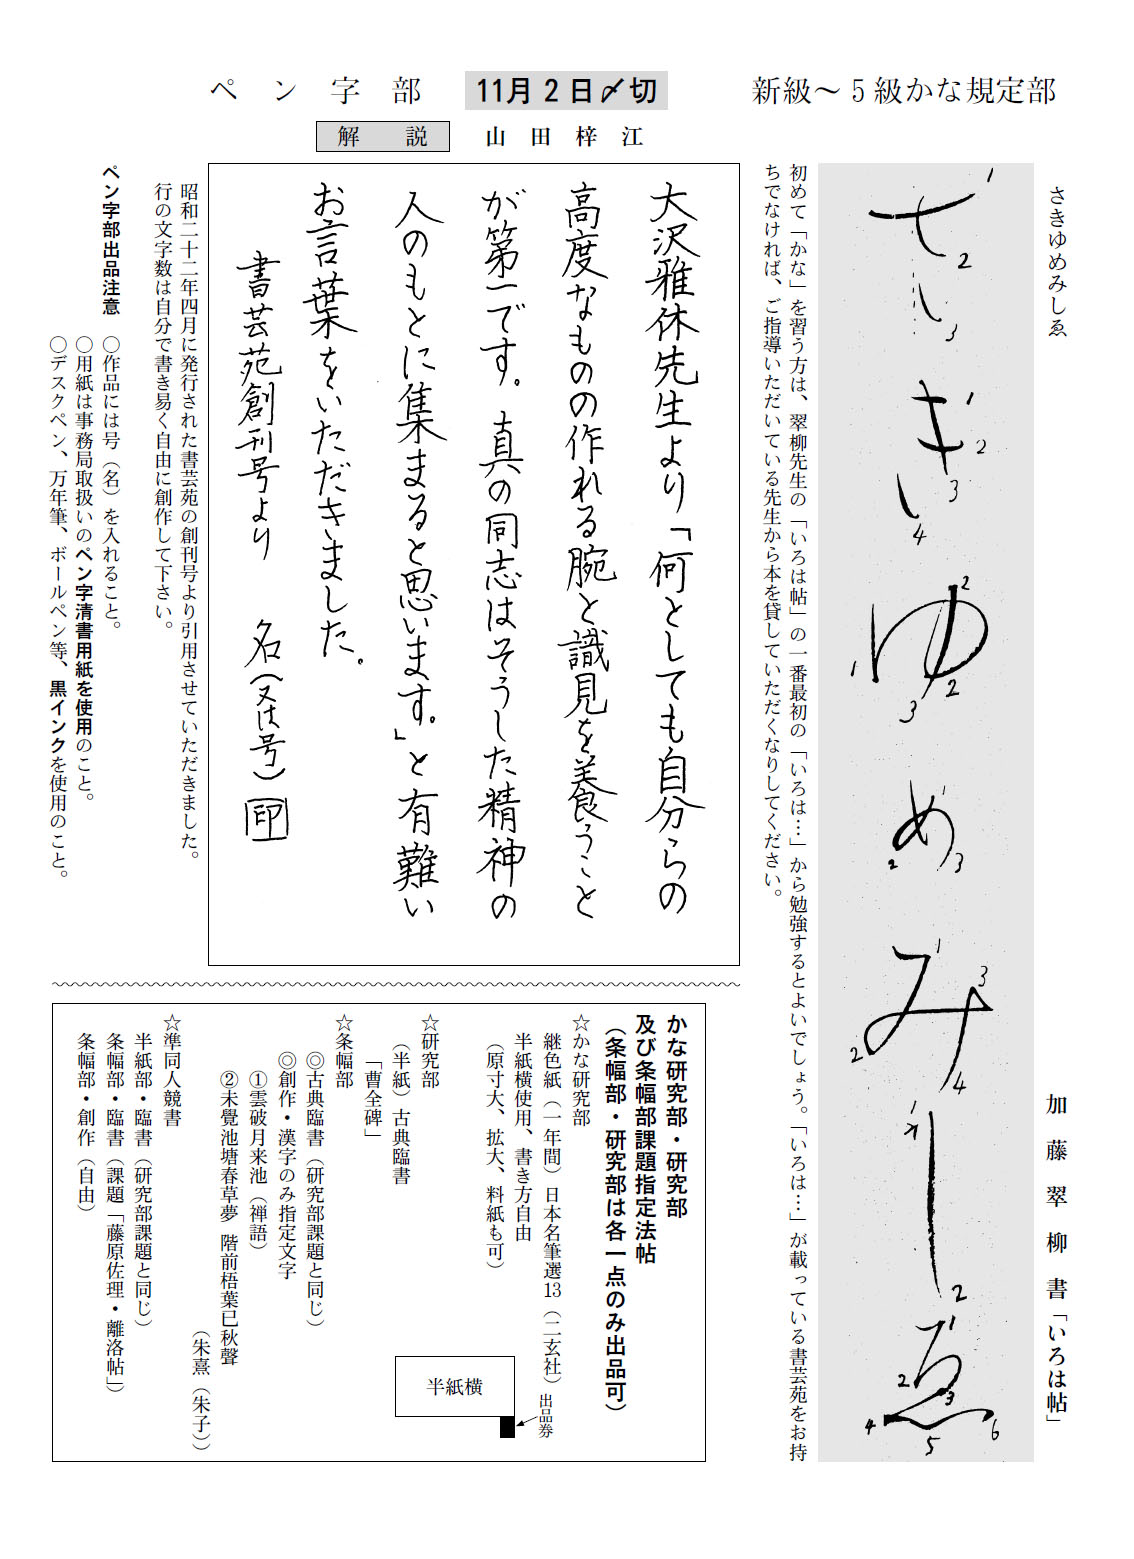 新級～5級かな規定部
さきゆめみしゑ
加藤翠柳書「いろは帖」
初めて「かな」を習う方は、翠柳先生の「いろは帖」の一番最初の「いろは…」から勉強するとよいでしょう。「いろは…」が載っている書芸苑をお持
ちでなければ、ご指導いただいている先生から本を貸していただくなりしてください。
11月2日〆切
ペン字部
解説 山田梓江
大沢雅休先生より「何としても自分らの
高度なものの作れる腕と識見を養うこと
が第一です。真の同志はそうした精神の
人のもとに集まると思います。」と有難い
お言葉をいただきました。
書芸苑創刊号より 名(又は号) 印
昭和二十二年四月に発行された書芸苑の創刊号より引用させていただきました。
行の文字数は自分で書き易く自由に創作して下さい。
ペン字部出品注意 ○作品には号（名）を入れること。
○用紙は事務局取扱いのペン字清書用紙を使用のこと。
○デスクペン、万年筆、ボールペン等、黒インクを使用のこと。
かな研究部・研究部
及び条幅部課題指定法帖
（条幅部・研究部は各一点のみ出品可）
☆かな研究部
継色紙（一年間）日本名筆選13（二玄社）
半紙横使用、書き方自由
（原寸大、拡大、料紙も可）
半紙横
出品券
☆研究部
（半紙）古典臨書
「曹全碑」
☆条幅部
◎古典臨書（研究部課題と同じ）
◎創作・漢字のみ指定文字
①雲破月来池（禅語）
②未覺池塘春草夢 階前梧葉巳秋聲
（朱熹（朱子））
☆準同人競書
半紙部・臨書（研究部課題と同じ）
条幅部・臨書（課題「藤原佐理・離洛帖」）
条幅部・創作（自由）